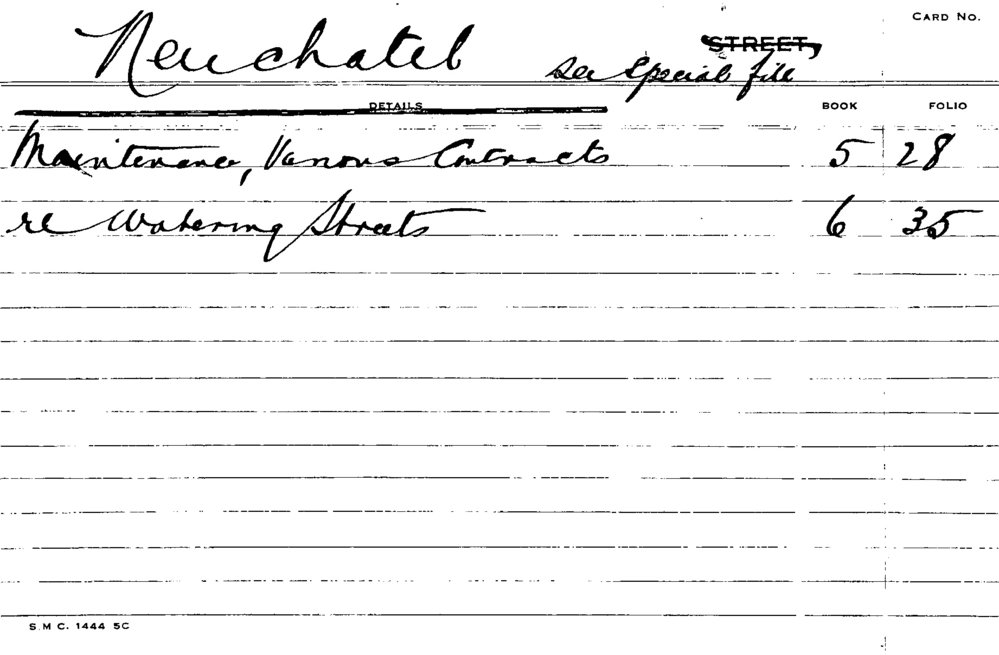 CARD No.
Neuchatel STREET,
see special file
DETAILS BOOK FOLIO
Maintenance, Various Contracts 5 28
re Watering Streets 6 35
S.M C. 1444 5C